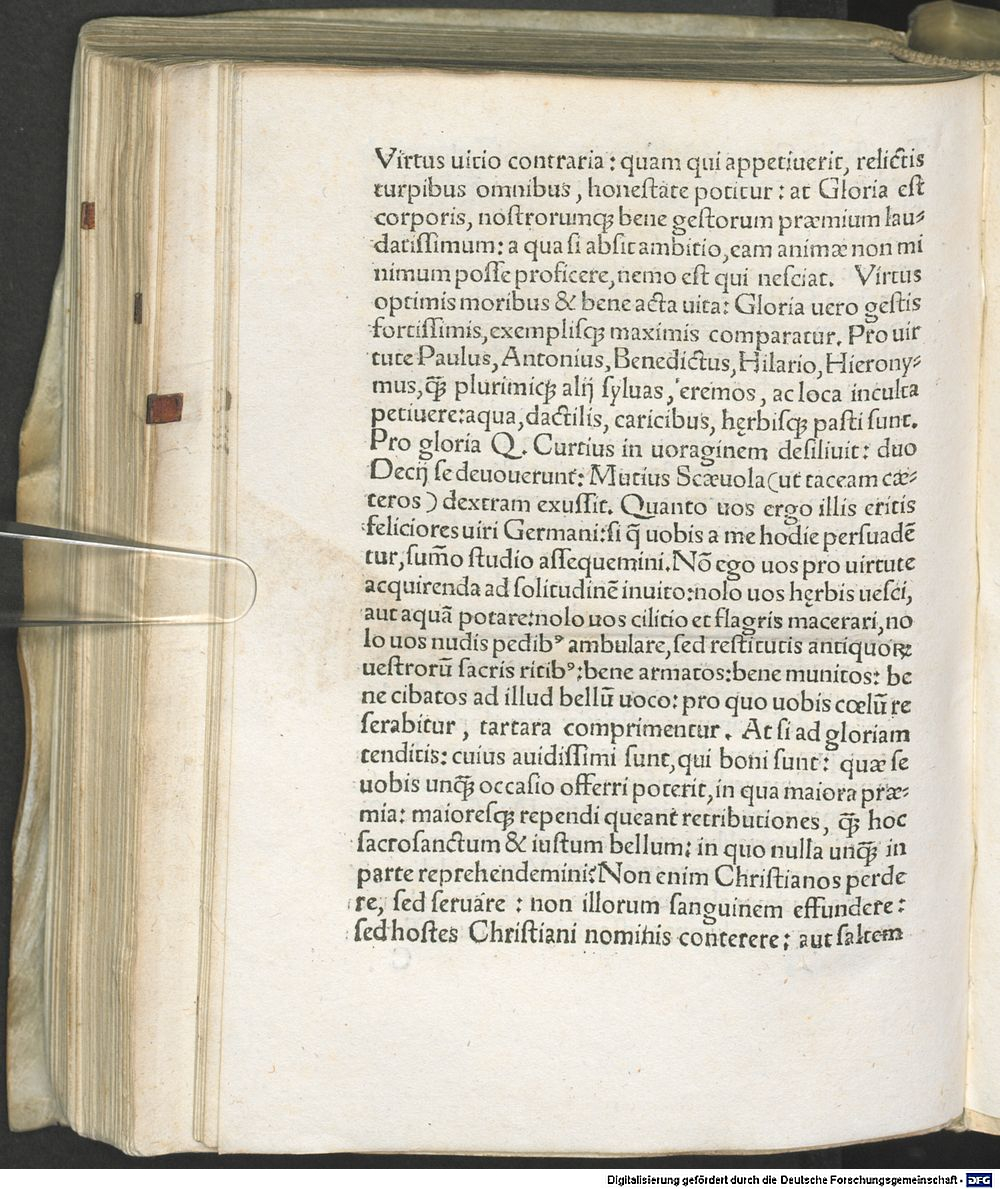 Virtus uitio contraria: quam qui appetiuerit, relictis
turpibus omnibus, honestate potitur: at Gloria est
corporis, nostrorumqꝫ bene gestorum præmium lau⸗
datissimum: a qua si absit ambitio, eam animæ non mi
nimum posse proficere, nemo est qui nesciat. Virtus
optimis moribus & bene acta uita: Gloria uero gestis
fortissimis, exemplisqꝫ maximis comparatur. Pro uir
tute Paulus, Antonius, Benedictus, Hilario, Hierony⸗
mus, q̃ꝫ plurimiqꝫ alij syluas, eremos, ac loca inculta
petiuere: aqua, dactilis, caricibus, hęrbisqꝫ pasti sunt.
Pro gloria Q. Curtius in uoraginem desiliuit: duo
Decij se deuouerunt: Mutius Scæuola (ut taceam cæ⸗
teros) dextram exussit. Quanto uos ergo illis eritis
feliciores uiri Germani: si q̃ uobis a me hodie persuadẽ
tur, sum̃o studio assequemini. Nõ ego uos pro uirtute
acquirenda ad solitudinẽ inuito: nolo uos hęrbis uesci,
aut aquã potare: nolo uos cilitio et flagris macerari, no
lo uos nudis pedibꝰ ambulare, sed restitutis antiquoꝝ
uestrorũ sacris ritibꝰ: bene armatos: bene munitos: be
ne cibatos ad illud bellũ uoco: pro quo uobis cœlũ re
serabitur, tartara comprimentur. At si ad gloriam
tenditis: cuius auidissimi sunt, qui boni sunt: quæ se
uobis unq̃ꝫ occasio offerri poterit, in qua maiora præ⸗
mia: maioresqꝫ rependi queant retributiones, q̃ꝫ hoc
sacrosanctum & iustum bellum: in quo nulla unq̃ꝫ in
parte reprehendemini? Non enim Christianos perde
re, sed seruare: non illorum sanguinem effundere:
sed hostes Christiani nominis conterere: aut saltem
Digitalisierung gefördert durch die Deutsche Forschungsgemeinschaft - DFG